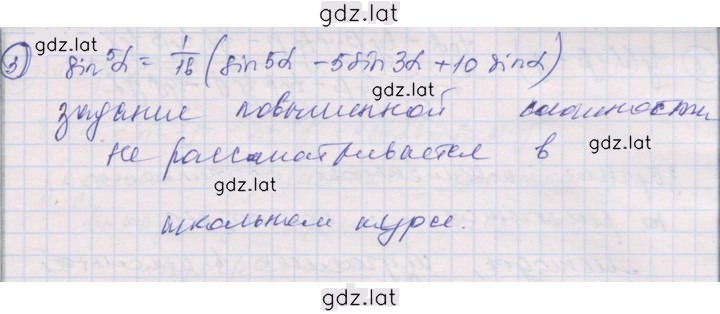 gdz.lat
gdz.lat
3) sin⁵α = 1/16 (sin5α - 5sin3α + 10 sinα)
задание повышенной сложности
не рассматривается в
gdz.lat
gdz.lat
школьном курсе.
gdz.lat